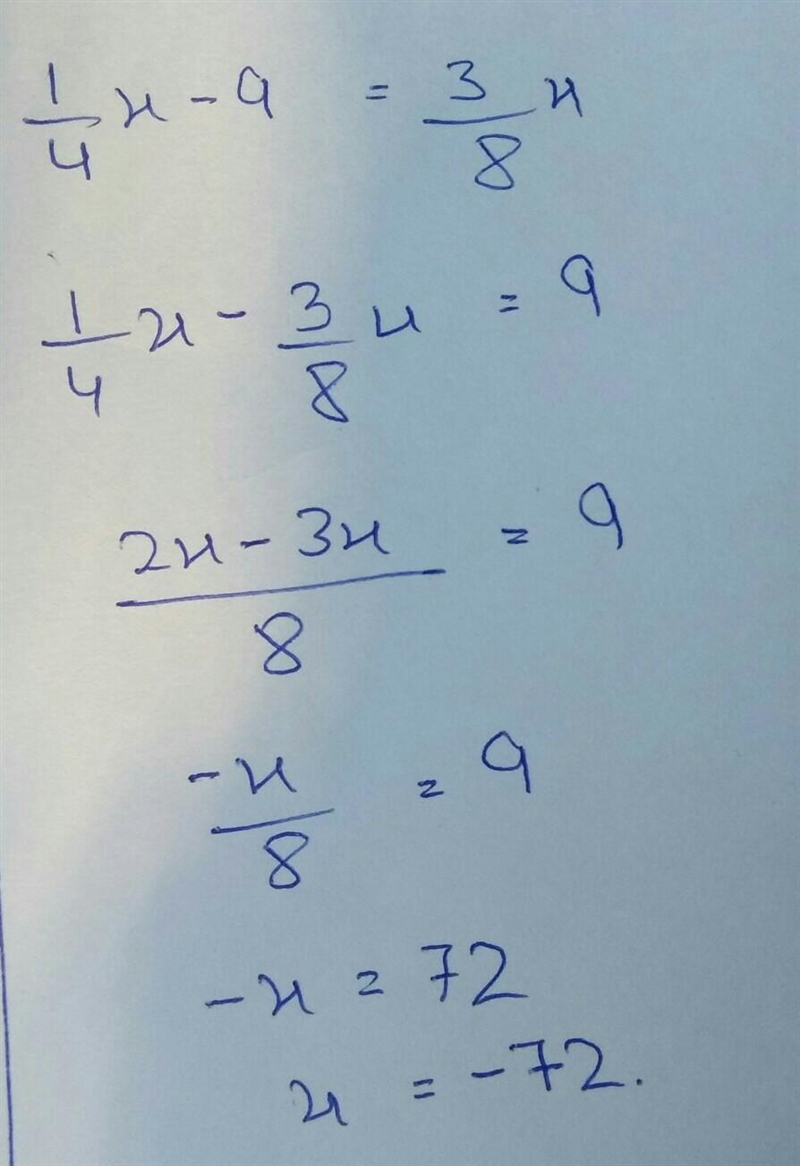 1/4 x - 9 = 3/8 x
1/4 x - 3/8 x = 9
(2x - 3x)/8 = 9
-x/8 = 9
-x = 72
x = -72.